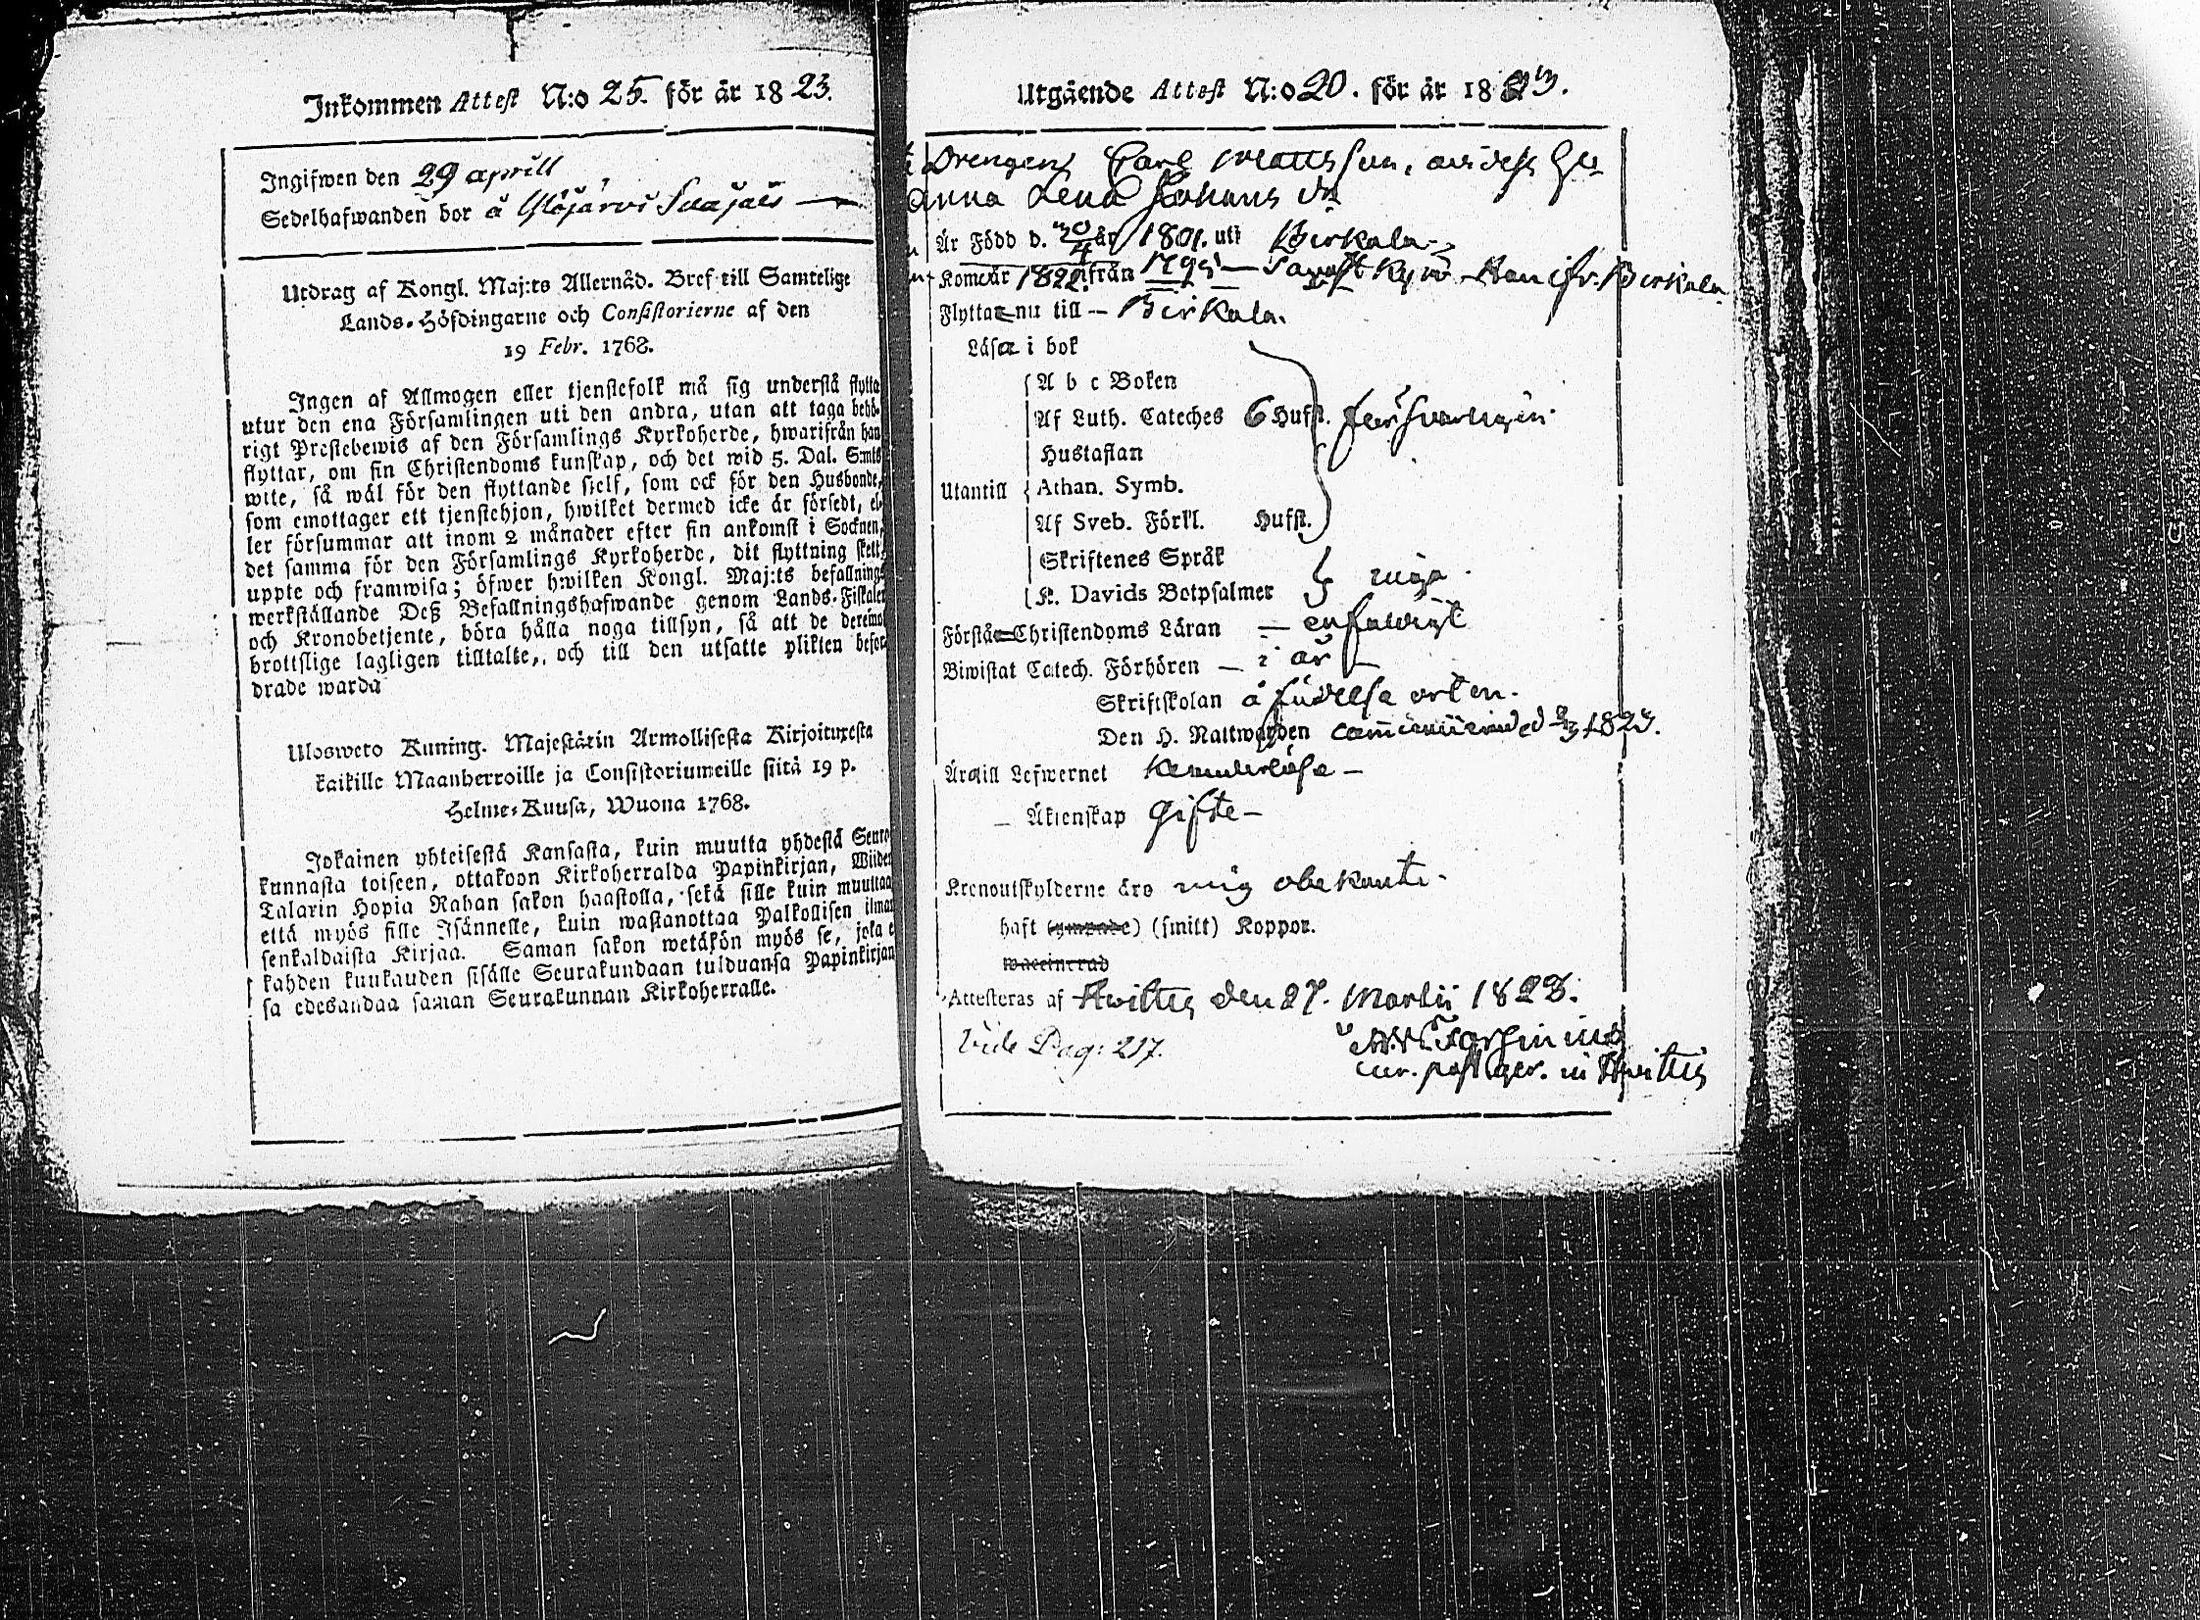 Inkommen Attest N:o 25. för år 1823.
Ingifwen den 29 aprill
Sedelhafwanden bor å Ylöjärvi
Utdrag af Kongl. Maj:ts Allernåd. Bref till Samtelige
Lands-Höfdingarne och Consistorierne af den
19 Febr. 1768.
Ingen af Allmogen eller tjenstefolk må sig understå flytta
utur den ena Församlingen uti den andra, utan att taga behö-
rigt Prestebewis af den Församlings Kyrkoherde, hwarifrån han
flyttar, om sin Christendoms kunskap, och det wid 5. Dal. S:mts
wite, så wäl för den flyttande sjelf, som ock för den Husbonde,
som emottager ett tjenstehjon, hwilket dermed icke är försedt, el-
ler försummar att inom 2 månader efter sin ankomst i Socknen,
det samma för den Församlings Kyrkoherde, dit flyttning skett,
uppte och framwisa; öfwer hwilken Kongl. Maj:ts befallnings
werkställande Deß Befallningshafwande genom Lands-Fiskaler
och Kronobetjente, böra hålla noga tillsyn, så att de deremot
brottslige lagligen tilltalte, och till den utsatte plikten befor-
drade warda
Ulosweto Kuning. Majestätin Armollisesta Kirjoituxesta
kaikille Maanherroille ja Consistoriumeille siitä 19 p.
Helme-Kuusa, Wuona 1768.
Jokainen yhteisestä Kansasta, kuin muutta yhdestä Seura-
kunnasta toiseen, ottakoon Kirkoherralda Papinkirjan, Wiiden
Talarin Hopia Rahan sakon haastolla, sekä sille kuin muuttaa
että myös sille Isännelle, kuin wastanottaa Palkollisen ilman
senkaldaista Kirjaa. Saman sakon wetäkön myös se, joka e
kahden kuukauden sisälle Seurakundaan tulduansa Papinkirjan
sa edesandaa saman Seurakunnan Kirkoherralle.
Utgående Attest N:o 20. för år 1823.
Drengen Carl Mattsson,
Anna Lena Johans dr
Är Född d. 20/4 år 1801. uti Birkala
Kom år 1822. från 1795 Kyro Han ifr. Birkala
Flyttar nu till — Birkala.
Läsa i bok
A b c Boken
Af Luth. Cateches 6 Hufst. försvarligen
Hustaflan
Utantill Athan. Symb.
Af Sveb. Förkl. Hufst.
Skriftenes Språk
K. Davids Botpsalmer
Förstå Christendoms Läran — enfaldigt
Biwistat Catech. Förhören — i år
Skriftskolan å födelse orten.
Den H. Nattwarden 1823.
Äro till Lefwernet
— Äktenskap gifte —
Kronoutskylderne äro mig obekante.
haft (ympade) (smitt) Koppor.
waccinerad
Attesteras af Hwittis den 27. Martii 1823.
Vide Pag: 217.
in Hwittis